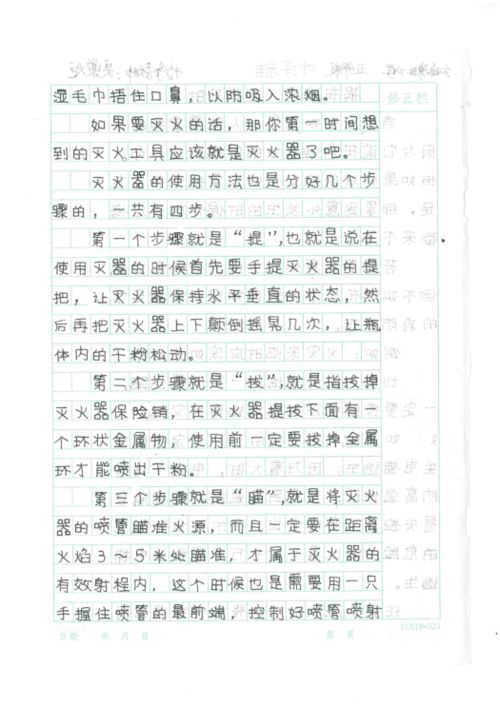 湿毛巾捂住口鼻，以防吸入浓烟。
修正栏
如果要灭火的话，那你第一时间想
到的灭火工具应该就是灭火器了吧。
灭火器的使用方法也是分好几个步
骤的，一共有四步。
第一个步骤就是“提”，也就是说在
使用灭器的时候首先要手提灭火器的提
把，让灭火器保持水平垂直的状态，然
后再把灭火器上下颠倒摇晃几次，让瓶
体内的干粉松动。
第二个步骤就是“拔”，就是指拔掉
灭火器保险销，在灭火器提拔下面有一
个环状金属物，使用前一定要拔掉金属
环才能喷出干粉。
第三个步骤就是“瞄”，就是将灭火
器的喷管瞄准火源，而且一定要在距离
火焰3待5米处瞄准，才属于灭火器的
有效射程内，这个时候也是需要用一只
手握住喷管的最前端，控制好喷管喷射
日期： 年 月 日 第 页 17X19=323